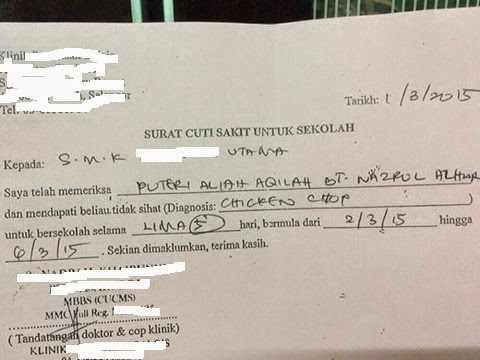 Klinik
S
Tel.
Tarikh: 1/3/2015
SURAT CUTI SAKIT UNTUK SEKOLAH
Kepada: S.M.K UTAMA
Saya telah memeriksa PUTERI ALIAH AQILAH BT. NAZRUL
dan mendapati beliau tidak sihat (Diagnosis: CHICKEN CHOP)
untuk bersekolah selama LIMA (5) hari, bermula dari 2/3/15 hingga
6/3/15. Sekian dimaklumkan, terima kasih.
MBBS (CUCMS)
MMC Full Reg.
(Tandatangan doktor & cop klinik)
KLINIK